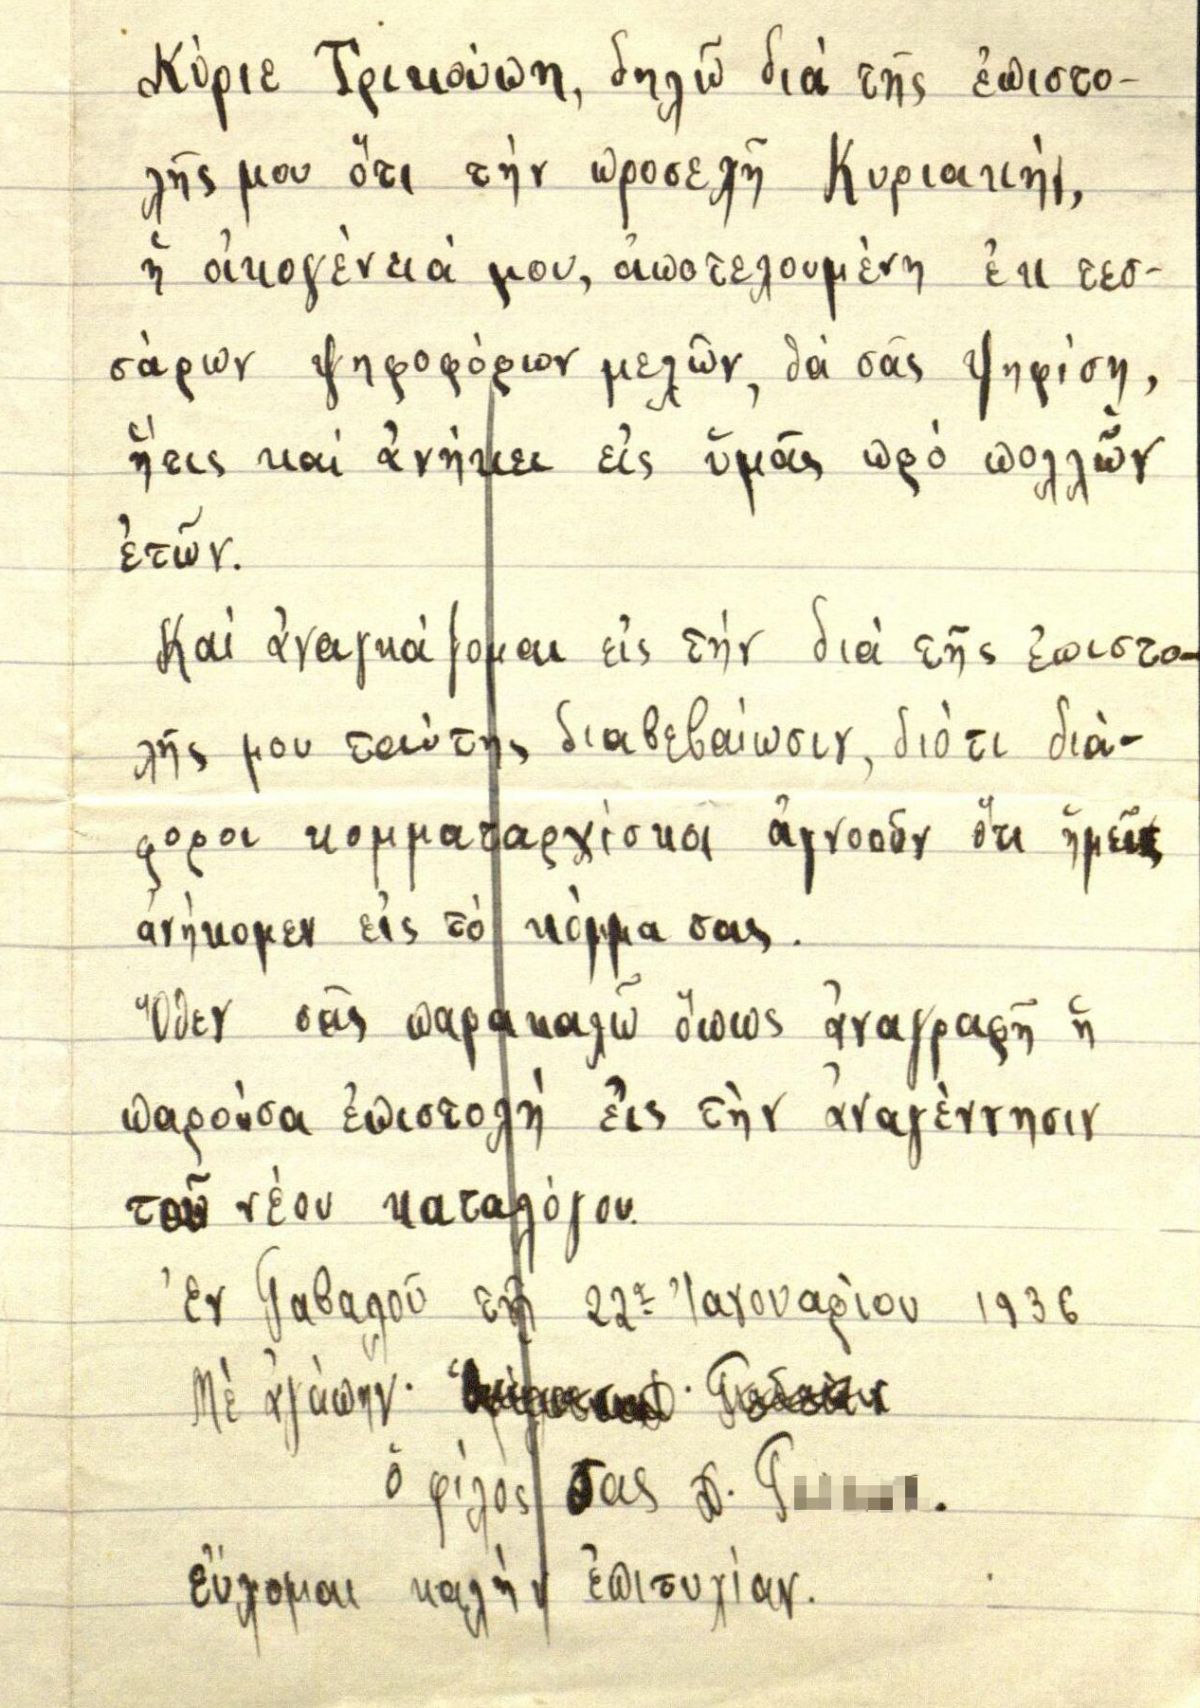 Κύριε Τρικούπη, δηλῶ διά τῆς ἐπιστο-
λῆς μου ὅτι τήν προσελῆ Κυριακήν,
ἥ οἰκογένειά μου, ἀποτελουμένη ἐκ τεσ-
σάρων ψηφοφόρων μελῶν, θά σᾶς ψηφίση,
ἥτις καί ἀνήκει εἰς ὕμᾶς πρό πολλῶν
ἐτῶν.
Καί ἀναγκάζομαι εἰς τήν διά τῆς ἐπιστο-
λῆς μου ταύτης διαβεβαίωσιν, διότι διά-
φοροι κομματαρχίσκοι ἀγνοοῦν ὅτι ἥμεῖς
ἀνήκομεν εἰς τό κόμμα σας.
Ὅθεν σᾶς παρακαλῶ ὅπως ἀναγραφῆ ἥ
παρούσα ἐπιστολή εἰς τήν ἀναγέννησιν
τοῦ νέου καταλόγου.
Ἐν Γαβαλοῦ τῆ 22ᾳ Ἰανουαρίου 1936
Μέ ἀγάπην.
ὅ φίλος σας Δ. Γ
εὔχομαι καλήν ἐπιτυχίαν.